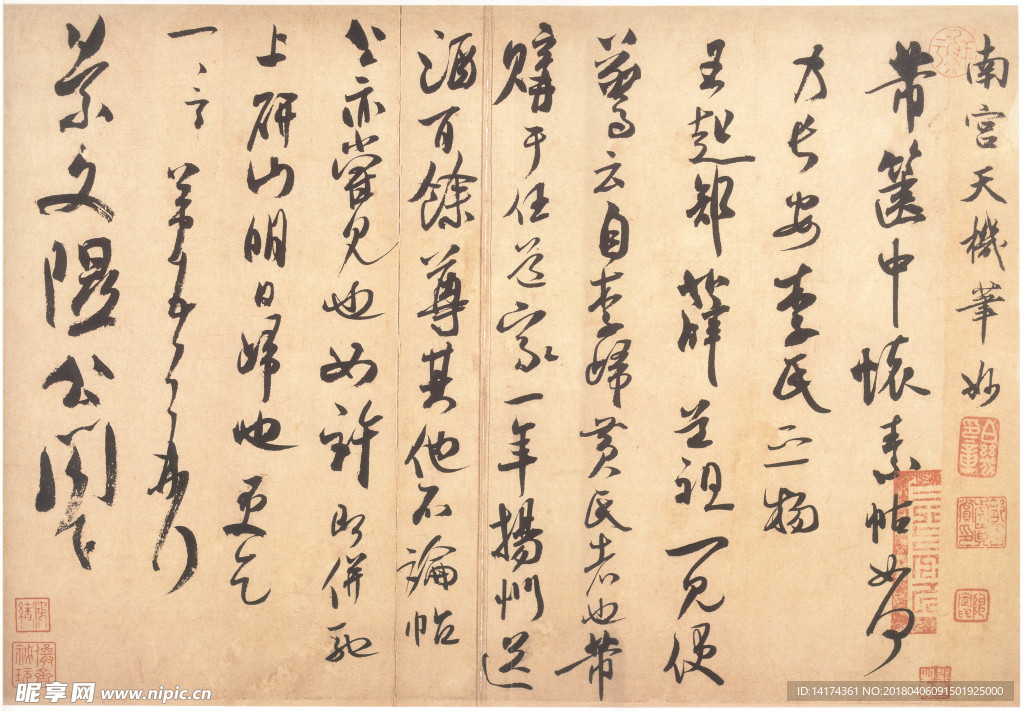 南宮天機筆妙
芾篋中懷素帖如何
乃長安李氏之物
王起部薛道祖一見便
驚云自李歸黃氏者也芾
購于任道家一年揚州送
酒百餘尊其他不論帖
公亦嘗見也如許即併馳
上研山明日歸也更乞
一言芾頓首再拜
景文隰公閤下
昵享网 www.nipic.cn
ID:14174361 NO:20180406091501925000